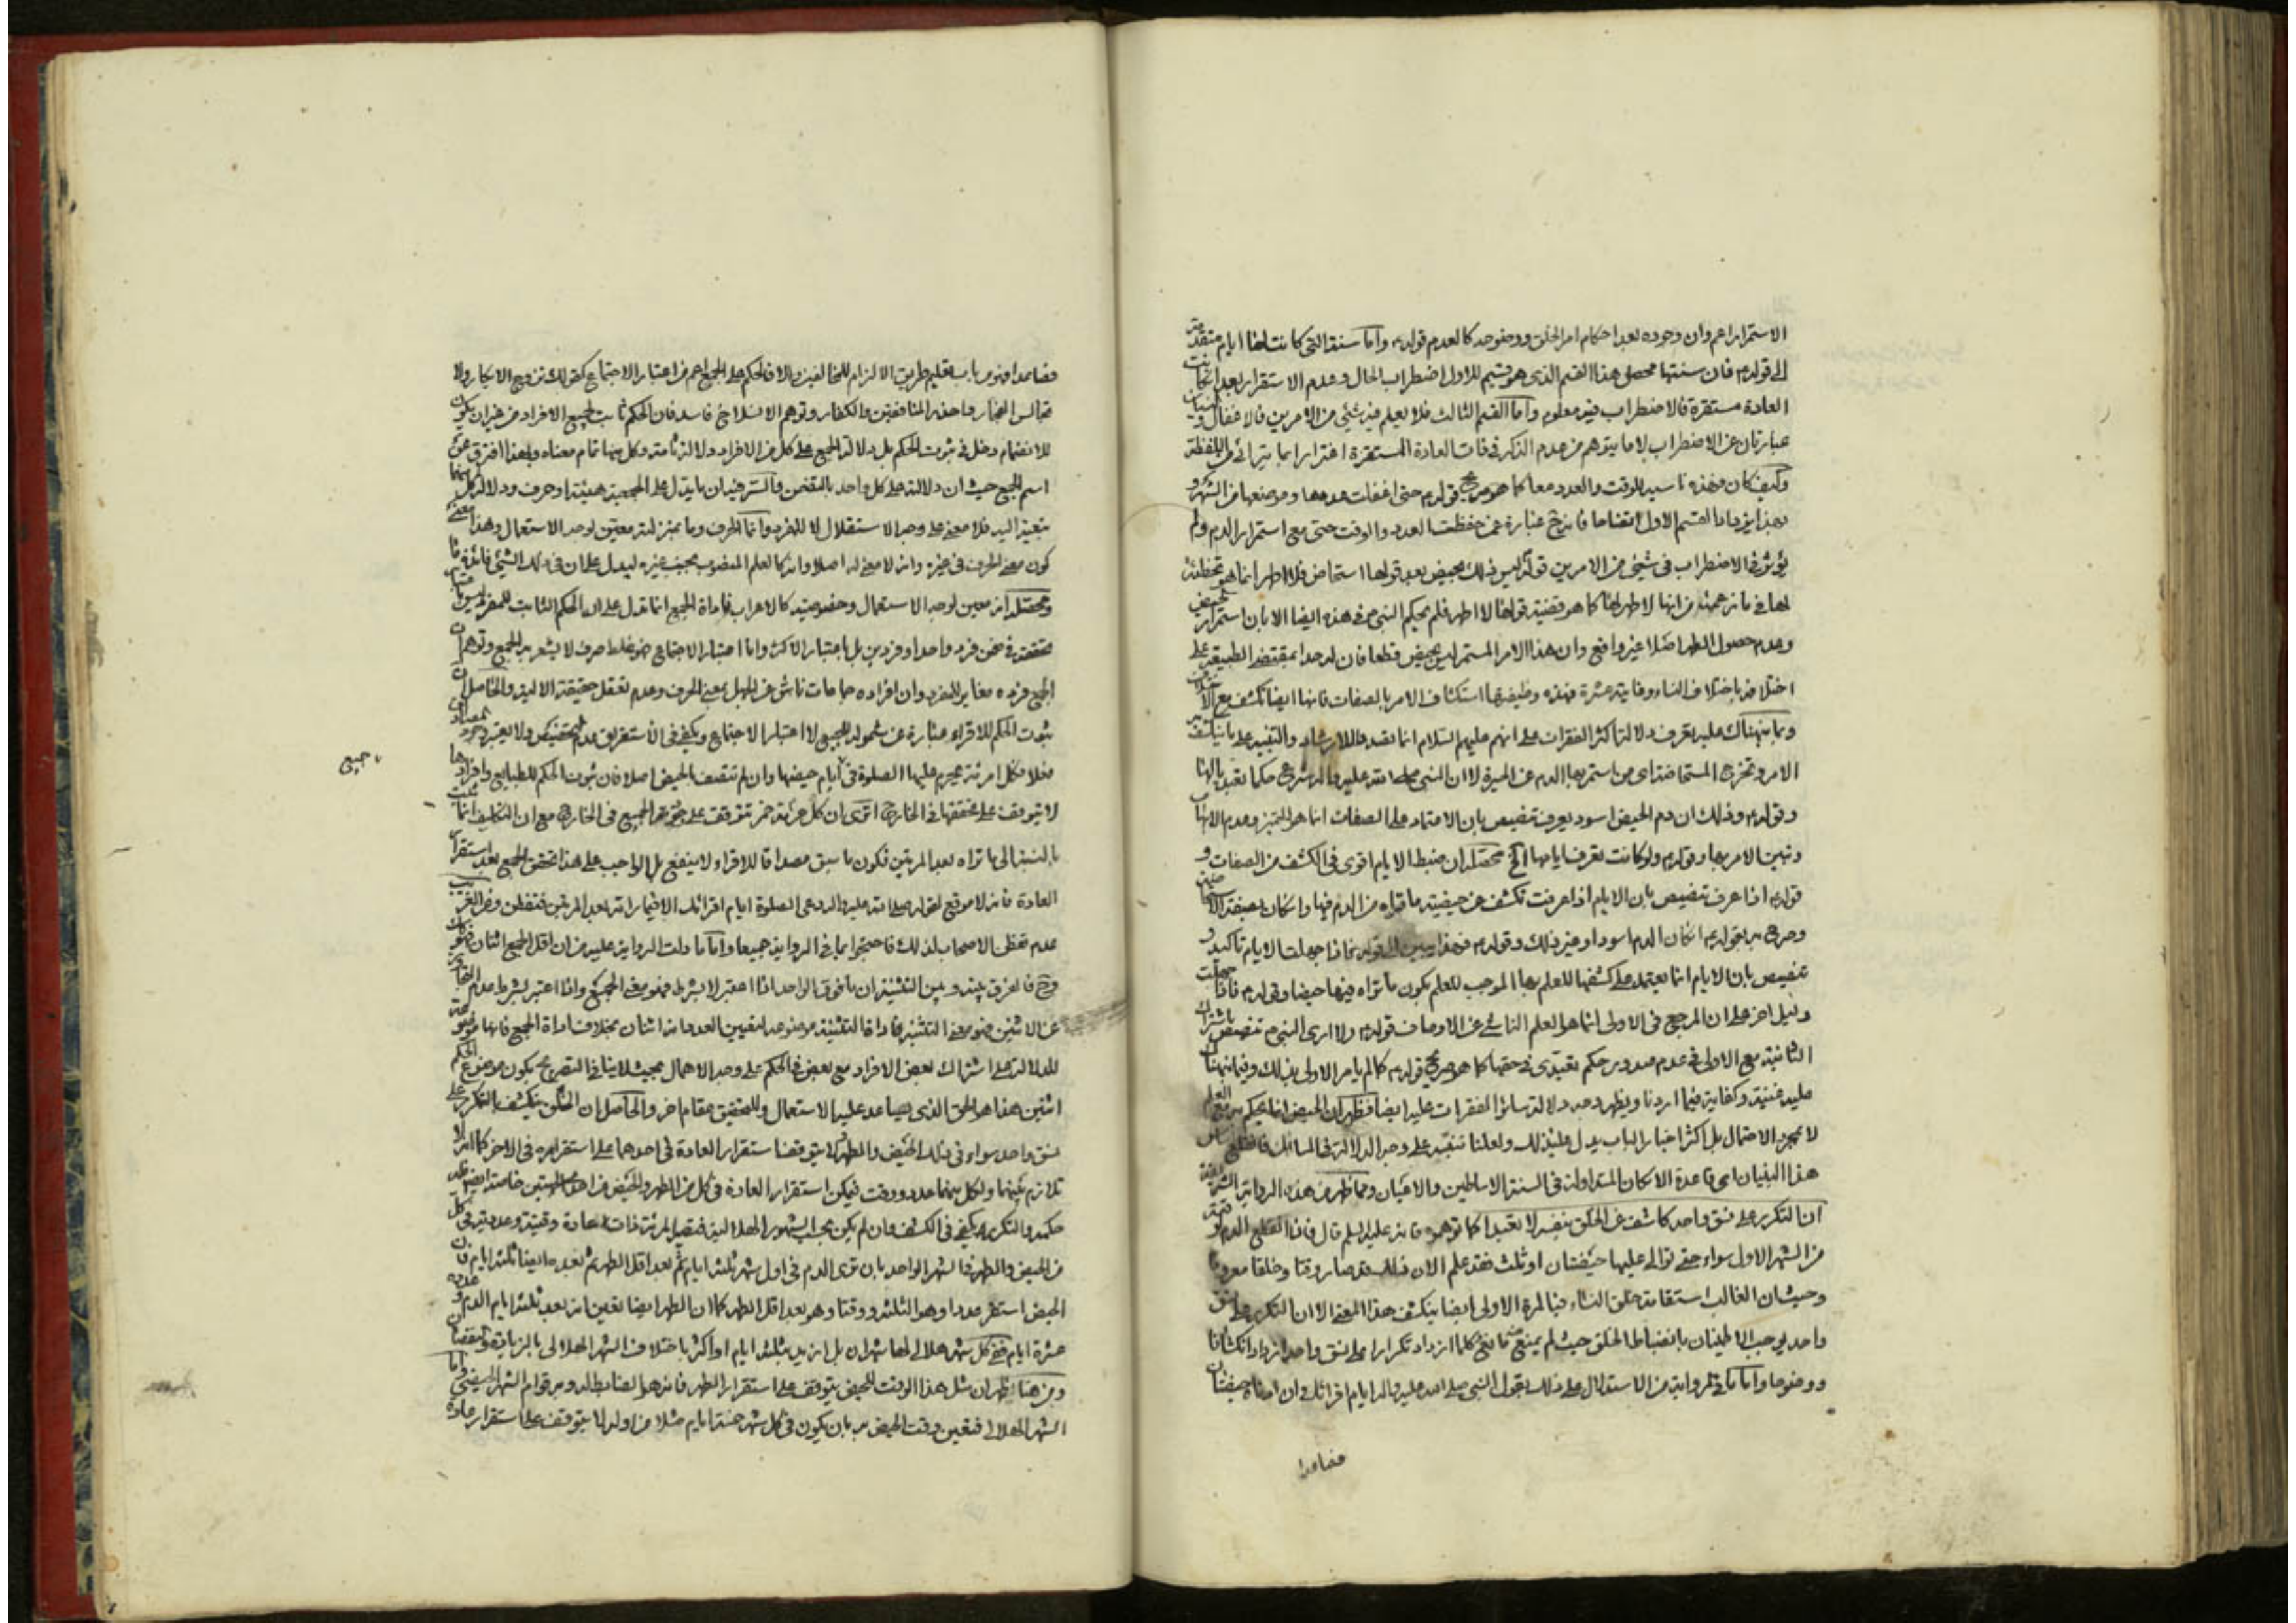 الاستمرار اعم وان وجوده بعد احكام امر الخلق ووضوحه كالعدم قوله واما سنة التي كانت لها ايام متقدمة
الى قوله فان سنتها محصل هذا القسم الذي هو قسيم للاول اضطراب الحال وعدم الاستقرار بعد ان كانت
العادة مستقرة فالاضطراب فيه معلوم واما القسم الثالث فلا يعلم فيه شئ من الامرين فالاغفال
عبارتان عن الاضطراب لا ما يتوهم من عدم الذكر في ذات العادة المستقرة اغترارا بما يترائى من اللفظة
وكيف كان فهذه ناسية للوقت والعدد معا كما هو صريح قوله حتى اغفلت عددها وموضعها من الشهر و
بهذا القسم الاول ايضا عبارة عمن حفظت العدد والوقت حتى مع استمرار الدم ولم
يؤثر في الاضطراب في شئ من الامرين قوله ليس ذلك بحيض بعد قولها استحاض فلا اطهر انما هو تخطئة
لها في ما زعمته من انها لا طهر لها كما هو قضية قولها لا اطهر فلم يحكم النبي ص في هذه ايضا الا بان استمرار الحيض
وعدم حصول الطهر اصلا غير واقع وان هذا الامر المستمر ليس بحيض قطعا فان له حدا بمقتضى الطبيعة على
اختلافه باختلاف النساء وغايته عشرة فهذه وظيفتها استكشاف الامر بالصفات فانها ايضا تكشف مع
وبما نبهناك عليه يعرف دلالة اكثر الفقرات على انهم عليهم السلام انما بصدد الارشاد والتنبيه على ما ينكشف به
الامر وتخرج المستحاضة اى من استمر بها الدم عن الحيرة لا ان النبي صلى الله عليه واله شرع حكما تعبديا لها
وقوله وذلك ان دم الحيض اسود يعرف تنصيص بان الاعتماد على الصفات انما هو للتميز وعدم
وتبين الامر بها وقوله ولو كانت تعرف ايامها الخ محصله ان ضبط الايام اقوى في الكشف من الصفات و
قوله اذا عرف تنصيص بان الايام اذا عرفت تكشف عن حيضية ما تراه من الدم فيها وان كان بصفة الاستحاضة
وصرح به بقوله ان كان الدم اسود او غير ذلك وقوله فهذا يبين لك قوله فاذا جهلت الايام تاكيد و
تنصيص بان الايام انما يعتمد على كشفها للعلم بها الموجب للعلم بكون ما تراه فيها حيضا وقوله فاذا جهلت
دليل اخر على ان المرجع في الاولى انما هو العلم الناشئ عن الاوصاف قوله ولا ارى النبي ص تنصيص باشتراك
الثانية مع الاولى في عدم صدور حكم تعبدى في حقها كما هو صريح قوله كما لم يامر الاولى بذلك وفيما نبهناك
عليه غنية وكفاية فيما اردنا ويظهر وجه دلالة سائر الفقرات عليه ايضا فظهر ان الحيض انما يحكم به مع العلم
لا بمجرد الاحتمال بل اكثر اخبار الباب يدل على ذلك ولعلنا ننبه على وجه الدلالة في المسائل فانقلع اساس
هذا البنيان اى قاعدة الامكان المتداولة في السنة الاساطين والاعيان ومما ظهر من هذه الرواية الشريفة
ان التكرر على نسق واحد كاشف عن الخلق بنفسه لا تعبدا كما توهموه فانه عليه السلم قال فاذا انقطع الدم لوقته
من الشهر الاول سواء حتى توالى عليها حيضتان او ثلث فقد علم الان ان ذلك قد صار وقتا وخلقا معروفا
وحيث ان الغالب استقامة خلق النساء فبالمرة الاولى ايضا ينكشف هذا المعنى الا ان التكرر على نسق
واحد يوجب الاطمينان بانضباط الخلق حيث لم يمنع منه مانع كلما ازداد تكرارا على نسق واحد ازداد انكشافا
ووضوحا واما ما في الرواية من الاستدلال على ذلك بقول النبي صلى الله عليه واله ايام اقرائك في ان ادناه حيضتان
فصاعدا
فصاعدا فهو من باب تعليم طريق الالزام للمخالفين والا فالحكم على الجمع اعم من اعتبار الاجتماع كقولك تزوج الابكار ولا
تجالس الفجار واحذر المنافقين والكفار وتوهم الانسلاخ فاسد فان الحكم ثابت لجميع الافراد من غير ان يكون
للانضمام دخل في ثبوت الحكم بل دلالة الجمع على كل من الافراد دلالة تامة وكل منها تمام معناه وبهذا افترق عن
اسم الجمع حيث ان دلالته على كل واحد بالتضمن والسر فيه ان ما يدل على الجمعية هيئة او حرف ودلالة كل منهما
كون معنى الحرف في غيره وانه لا معنى له اصلا وانه كالعلم المنصوب بجنب غيره ليدل على ان في ذلك الشئ فائدة ما
ومحصله انه معين لوجه الاستعمال وخصوصيته كالاعراب فاداة الجمع انما تدل على ان الحكم الثابت للمفرد ليس باعتبار
تحققه في ضمن فرد واحد او فردين بل باعتبار الاكثر واما اعتبار الاجتماع فهو غلط صرف لا يشعر به الجمع وتوهم ان
الجمع فرده مغاير للمفرد وان افراده جماعات ناش عن الجهل بمعنى الحرف وعدم تعقل حقيقة الالية والحاصل ان
ثبوت الحكم للاقراء عبارة عن شموله للجميع لا اعتبار الاجتماع ويكفي في الاستغراق عدم التخصيص ولا يعتبر وجود
فعلا فكل امرئة يحرم عليها الصلوة في ايام حيضها وان لم تتصف بالحيض اصلا فان ثبوت الحكم للطبايع وافرادها
لا يتوقف على تحققها في الخارج اترى ان كل حرمة خمر تتوقف على الجميع في الخارج مع ان التكليف انما
جميع
بالنسبة الى ما تراه بعد المرتين فكون ما سبق مصداقا للاقراء لا ينفع بل الواجب على هذا تحقق الجمع بعد استقرار
العادة فانه لا موقع لقوله صلى الله عليه واله دعى الصلوة ايام اقرائك الا فيما راته بعد المرتين فتفطن ومن الغريب
عدم تفطن الاصحاب لذلك فاحتجوا بما في الرواية جميعا واما ما دلت الرواية عليه من ان اقل الجمع اثنان فهو
وح فالفرق بينه وبين التثنية ان ما فوق الواحد اذا اعتبر لا بشرط فهو معنى الجمع واذا اعتبر بشرط عدم التجاوز
عن الاثنين فهو معنى التثنية فاداة التثنية موضوعة لتعيين العدد بانه اثنان بخلاف اداة الجمع فانها موضوعة
للدلالة على اشتراك بعض الافراد مع بعض في الحكم على وجه الاهمال بحيث لا ينافي التصريح بكون موضوع الحكم
اثنين هذا هو الحق الذي يساعد عليه الاستعمال وللتحقيق مقام اخر والحاصل ان الخلق ينكشف بالتكرر على
نسق واحد سواء في ذلك الحيض والطهر ولا يتوقف استقرار العادة في احدهما على استقراره في الاخر كما انه لا
تلازم بينهما ولكل منهما عدد ووقت فيمكن استقرار العادة في كل من الطهر والحيض من احدى الجهتين خاصة
حكمه والتكرر يكفي في الكشف وان لم يكن بحسب الشهور الهلالية فتصير المرئة ذات عادة وقتية وعددية في كل
من الحيض والطهر في الشهر الواحد بان ترى الدم في اول شهر ثلثة ايام ثم بعد اقل الطهر ثم بعده ايضا ثلثة ايام فان
الحيض استقر عددا وهو الثلثة ووقتا وهو بعد اقل الطهر كما ان الطهر ايضا تعين انه بعد ثلثة ايام الدم وعدده
عشرة ايام ففي كل شهر هلالي لها شهران بل ازيد بثلثة ايام او اكثر باختلاف الشهر الهلالي بالزيادة والنقصان
ومن هنا ظهر ان مثل هذا الوقت للحيض يتوقف على استقرار الطهر فانه هو الضابط له وبه قوام الشهر الحيضي واما
الشهر الهلالي فتعين وقت الحيض به بان يكون في كل شهر خمسة ايام مثلا من اوله لا يتوقف على استقرار عادة